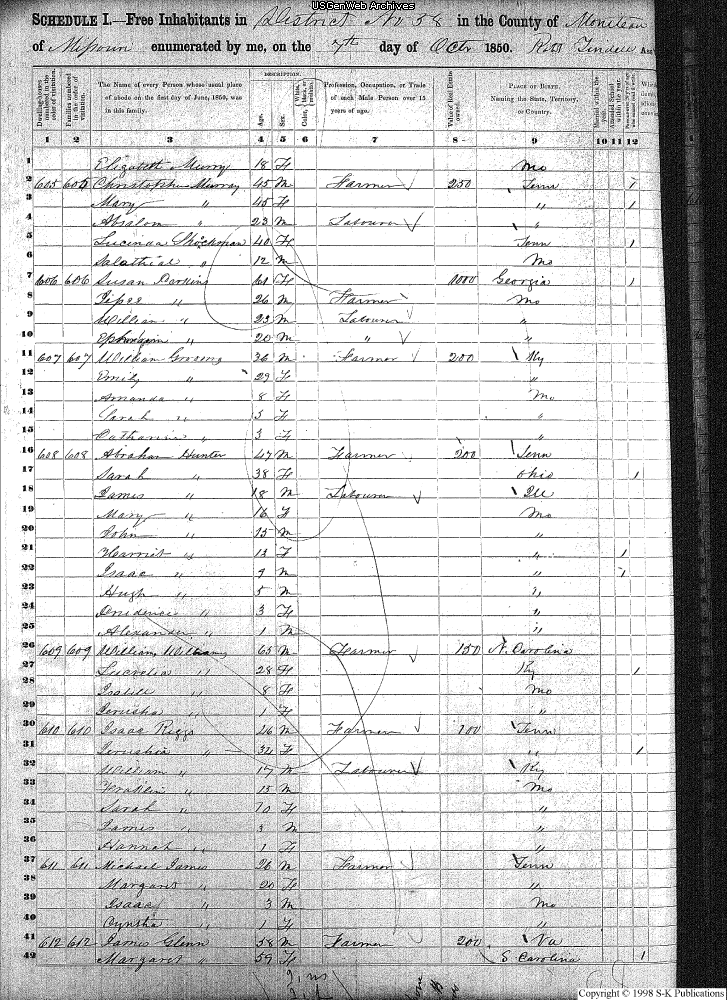 USGenWeb Archives
SCHEDULE I.—Free Inhabitants in District No 38 in the County of Moniteau
of Missouri enumerated by me, on the 7th day of Octr 1850.
DESCRIPTION.
Dwelling-houses numbered in the order of visitation.
Families numbered in the order of visitation.
The Name of every Person whose usual place of abode on the first day of June, 1850, was in this family.
Age.
Sex.
Color,
Profession, Occupation, or Trade of each Male Person over 15 years of age.
Value of Real Estate owned.
PLACE OF BIRTH. Naming the State, Territory, or Country.
Married within the year.
1 2 3 4 5 6 7 8 9 10 11 12
1 Elizabeth Murry 18 F Mo
2 605 605 Christopher Murray 45 M Farmer 250 Tenn 1
3 Mary " 45 F " 1
4 Absalom " 23 M Labourer "
5 Lucinda 40 F Tenn 1
6 Salathial " 12 M Mo
7 606 606 Susan Perkins 61 F 1000 Georgia 1
8 " 26 M Farmer Mo
9 William " 23 M Labourer "
10 Ephraim " 20 M " "
11 607 607 William 36 M Farmer 200 Ky
12 Emily " 29 F "
13 Amanda " 8 F Mo
14 Sarah " 5 F "
15 Catharine " 3 F "
16 608 608 Abraham Hunter 47 M Farmer 200 Tenn
17 Sarah " 38 F Ohio 1
18 James " 18 M Labourer Ill
19 Mary " 16 F Mo
20 John " 15 M "
21 Harriet " 13 F " 1
22 Isaac " 9 M " 1
23 Hugh " 5 M "
24 " 3 F "
25 Alexander " 1 M "
26 609 609 William Williams 65 M Farmer 150 N. Carolina
27 Lucretia " 28 F Ky 1
28 " 8 F Mo
29 Jerusha " 1 F "
30 610 610 Isaac Riggs 26 M Farmer 100 Tenn
31 " 32 F " 1
32 William " 17 M Labourer Ky
33 " 15 M Mo
34 Sarah " 10 F "
35 James " 3 M "
36 Hannah " 1 F "
37 611 611 Michael James 26 M Farmer Tenn
38 Margaret " 20 F "
39 Isaac " 3 M Mo
40 Cyntha " 1 F "
41 612 612 James Glenn 58 M Farmer 200 Va
42 Margaret " 59 F S Carolina 1
Copyright © 1998 S-K Publications